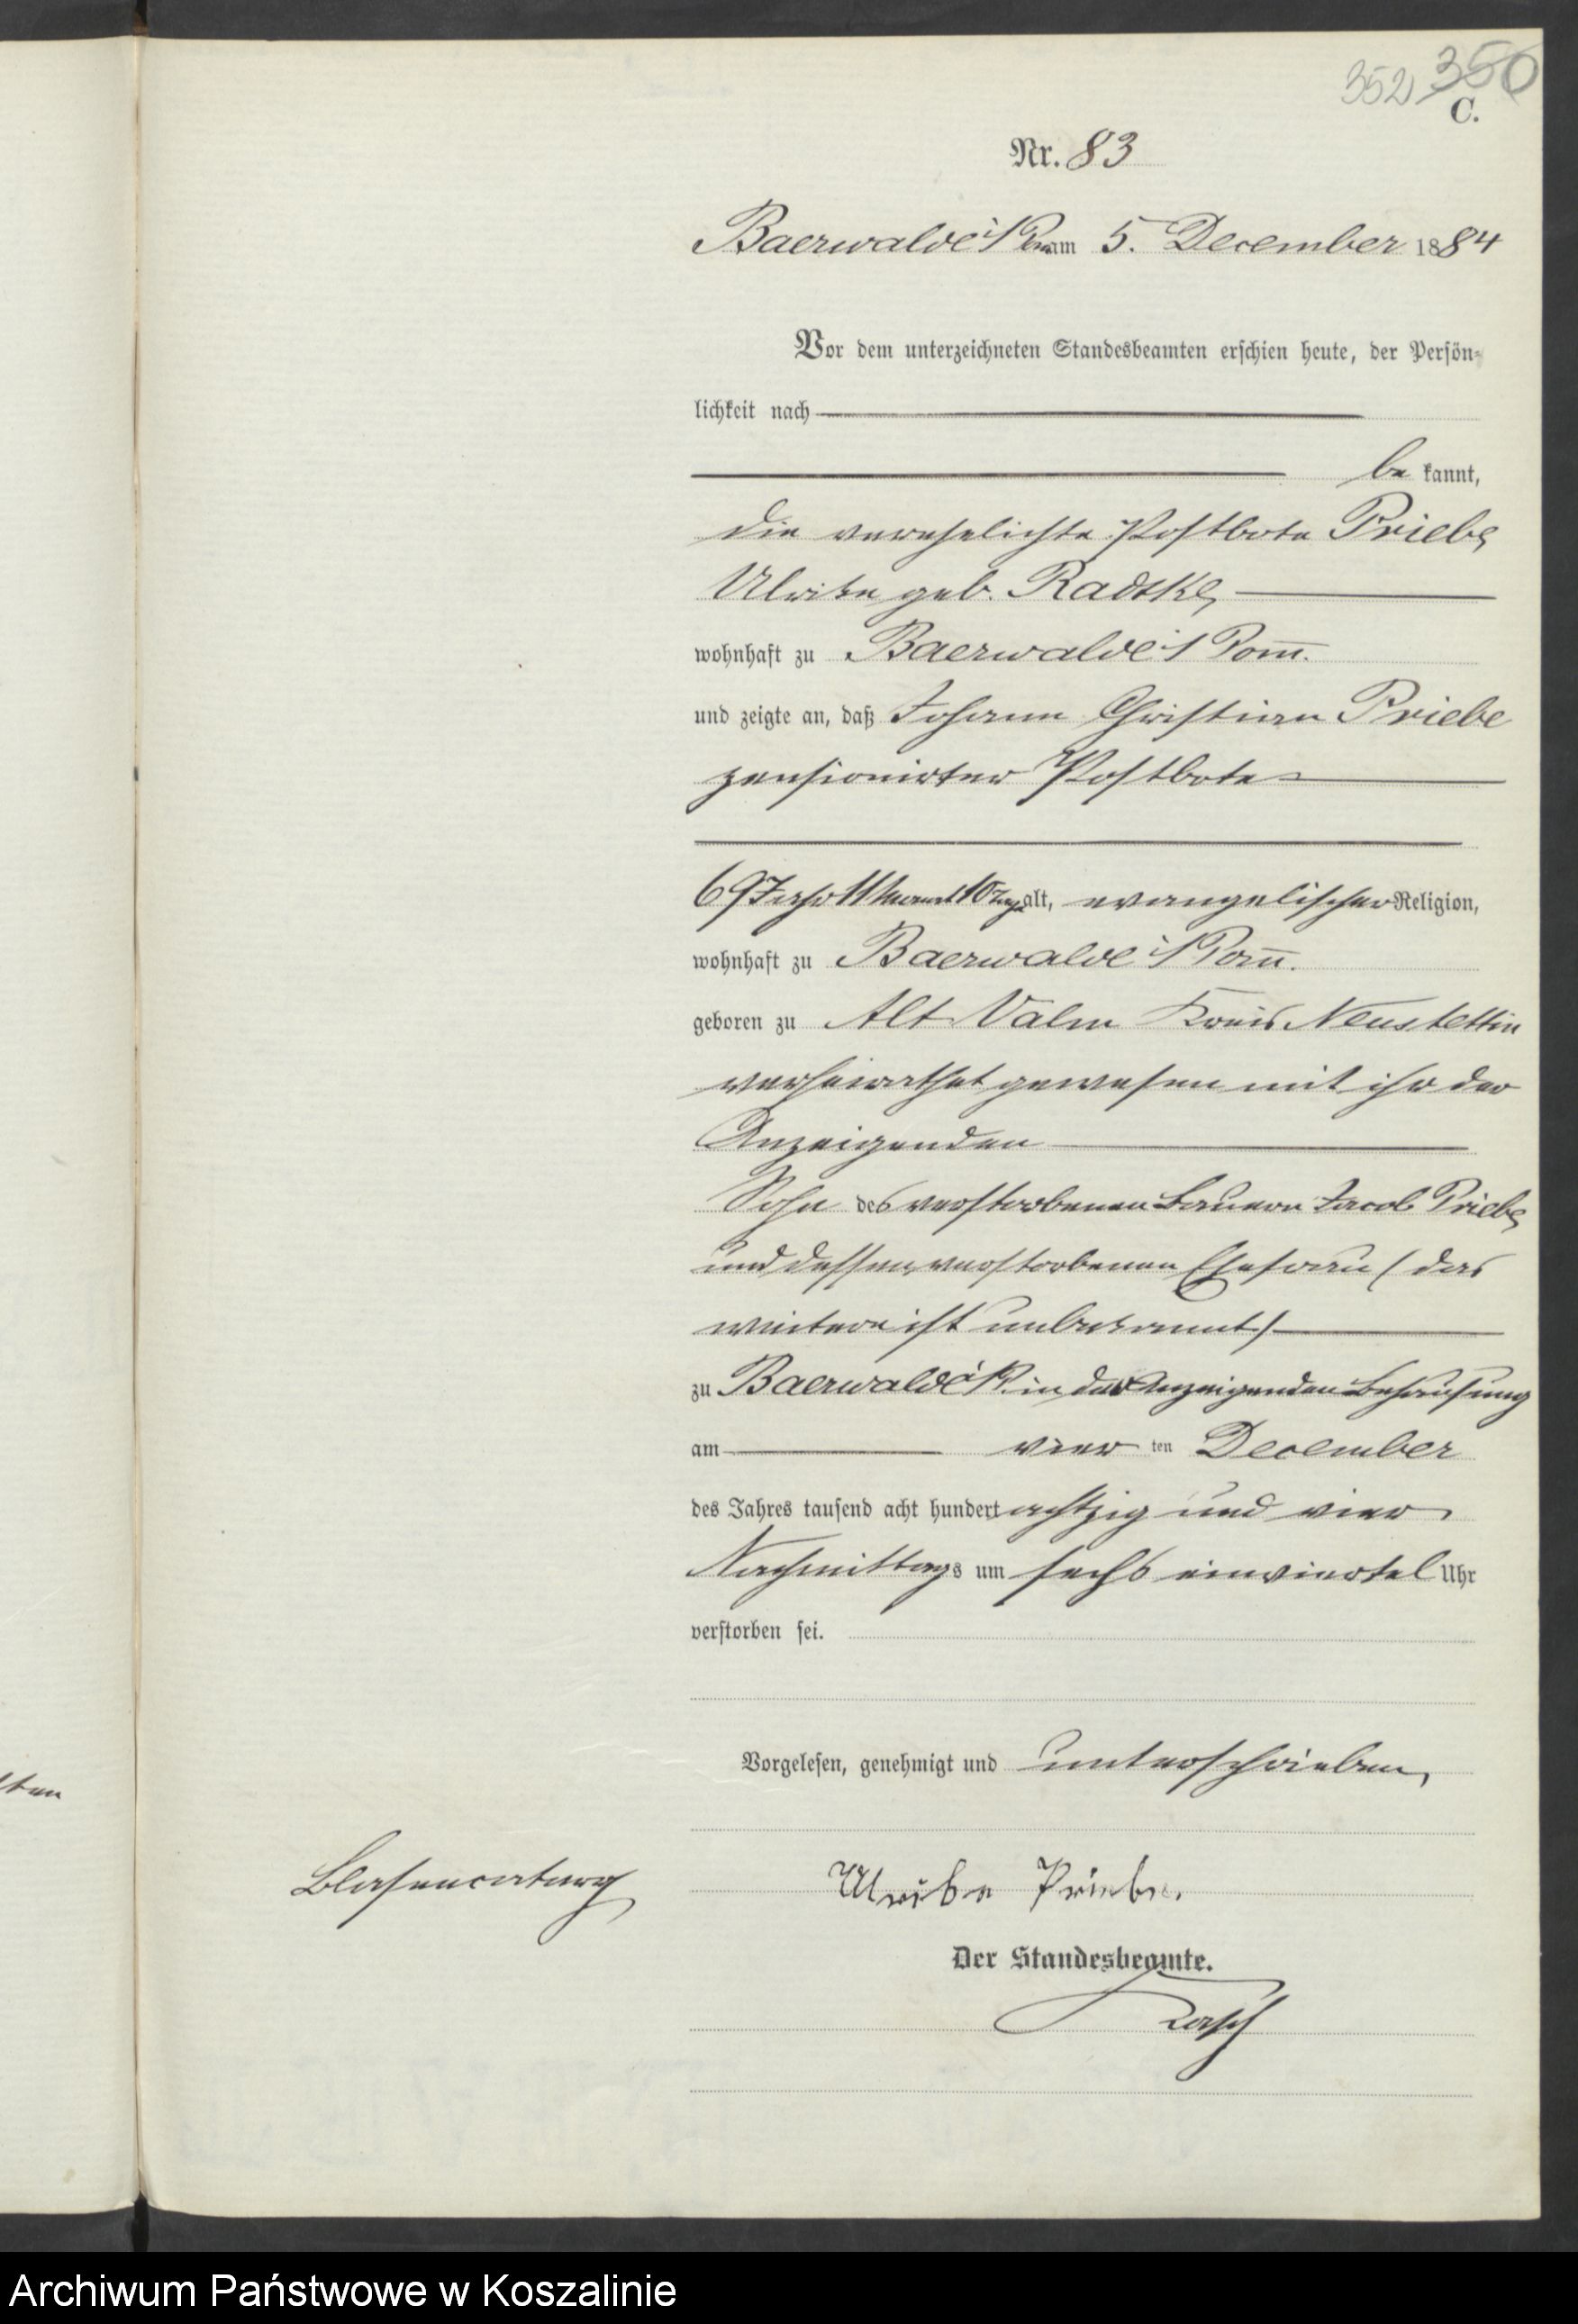 352 350
C.
Nr. 83
Baerwalde i/Pom am 5. December 1884
Vor dem unterzeichneten Standesbeamten erschien heute, der Persön-
lichkeit nach
be kannt,
die verehelichte Postbote Priebe
Ulrike geb. Radtke,
wohnhaft zu Baerwalde i/Pom̅.
und zeigte an, daß Johann Christian Priebe
pensionirter Postbote
69 Jahr 11 Monat 10 Tage alt, evangelischer Religion,
wohnhaft zu Baerwalde i/Pom̅.
geboren zu Alt Valm Kreis Neustettin
verheirathet gewesen mit ihr der
Anzeigenden
Sohn des verstorbenen Bauern Jacob Priebe
und dessen verstorbenen Ehefrau (das
weitere ist unbekannt)
zu Baerwalde i/P. in der Anzeigenden Behausung
am vier ten December
des Jahres tausend acht hundert achtzig und vier
Nachmittags um sechs einviertel Uhr
verstorben sei.
Vorgelesen, genehmigt und unterschrieben,
ten
Blasencatarrh
Ulrike Priebe.
Der Standesbeamte.
Archiwum Państwowe w Koszalinie